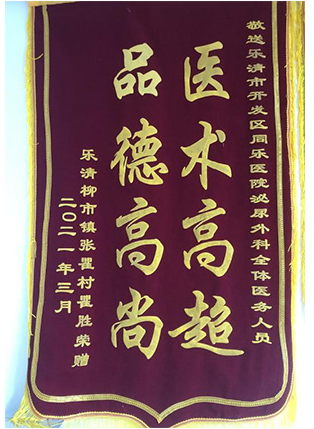 敬送乐清市开发区同乐医院泌尿外科全体医务人员
医术高超
品德高尚
乐清柳市镇张瞿村瞿胜荣赠
二〇二一年三月